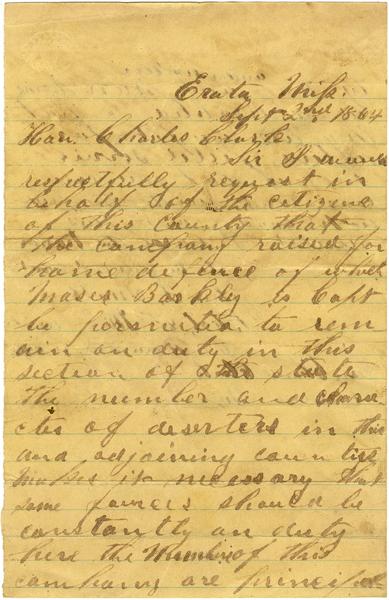 Erata Miss.
Sept 2nd 1864
Hon. Charles Clark
Sir I must
respectfully request in
behalf of the citizens
of this county that
the company raised for
home defence of which
Moses Barkly is Capt
be permitted to rem
ain on duty in this
section of the state
The number and chara
cter of deserters in this
and adjoining counties
makes it necessary that
some forces should be
constantly on duty
here the Members of this
company are principal